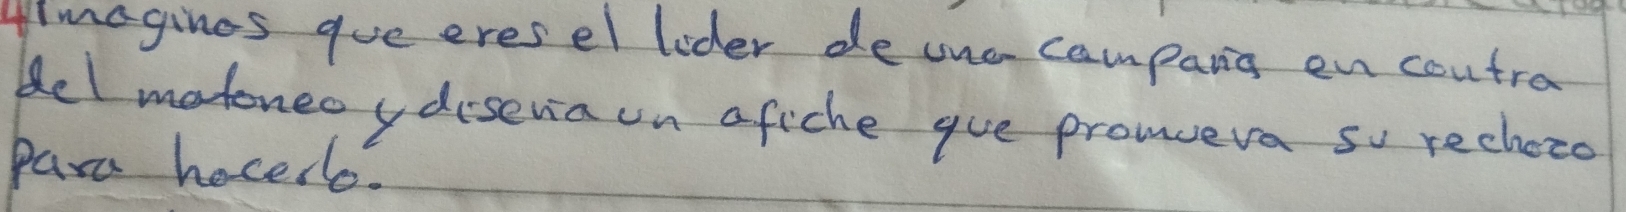 4 Imaginas que eres el lider de una campaña en contra
del matoneo y diseña un afiche que promueva su rechazo
para hacerlo.